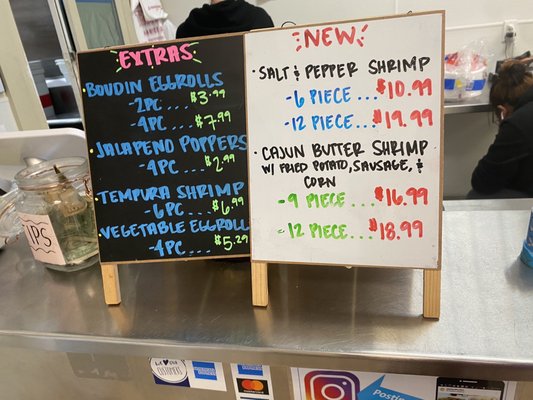 EXTRAS
·BOUDIN EGGROLLS
-2PC....$3.99
-4PC....$7.49
·JALAPENO POPPERS
-4PC....$2.99
·TEMPURA SHRIMP
-6PC....$6.99
·VEGETABLE EGGROLL
-4PC....$5.29
NEW
·SALT & PEPPER SHRIMP
-6 PIECE...$10.99
-12 PIECE...$19.99
·CAJUN BUTTER SHRIMP
W/ FRIED POTATO, SAUSAGE, &
CORN
-9 PIECE...$16.99
-12 PIECE...$18.99
TIPS
CUSTOMERS
Posting